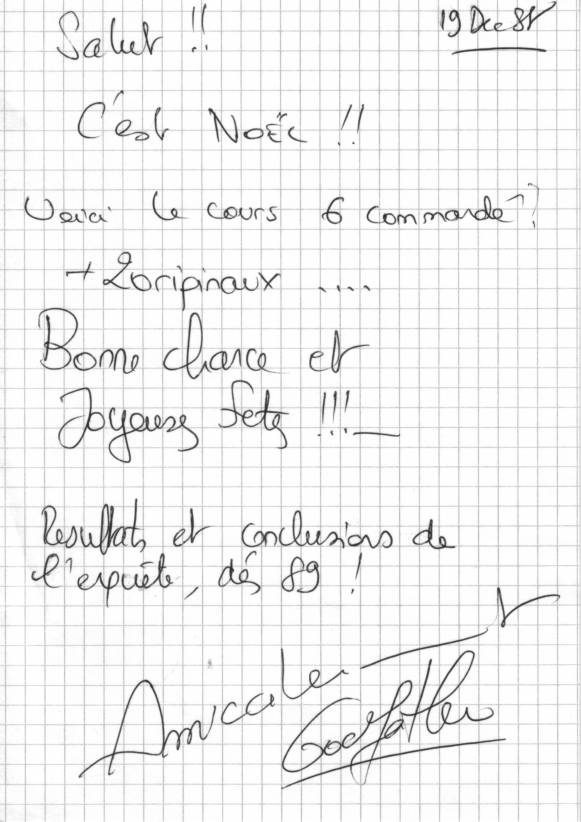 19 Dec 88
Salut !!
C'est NOËL !!
Voici le cours 6 commandé ?
+ 2 originaux ....
Bonne chance et
Joyeuses fêtes !!!
Resultats et conclusions de
l'enquête, dés 89 !
Amicalement
Godfather